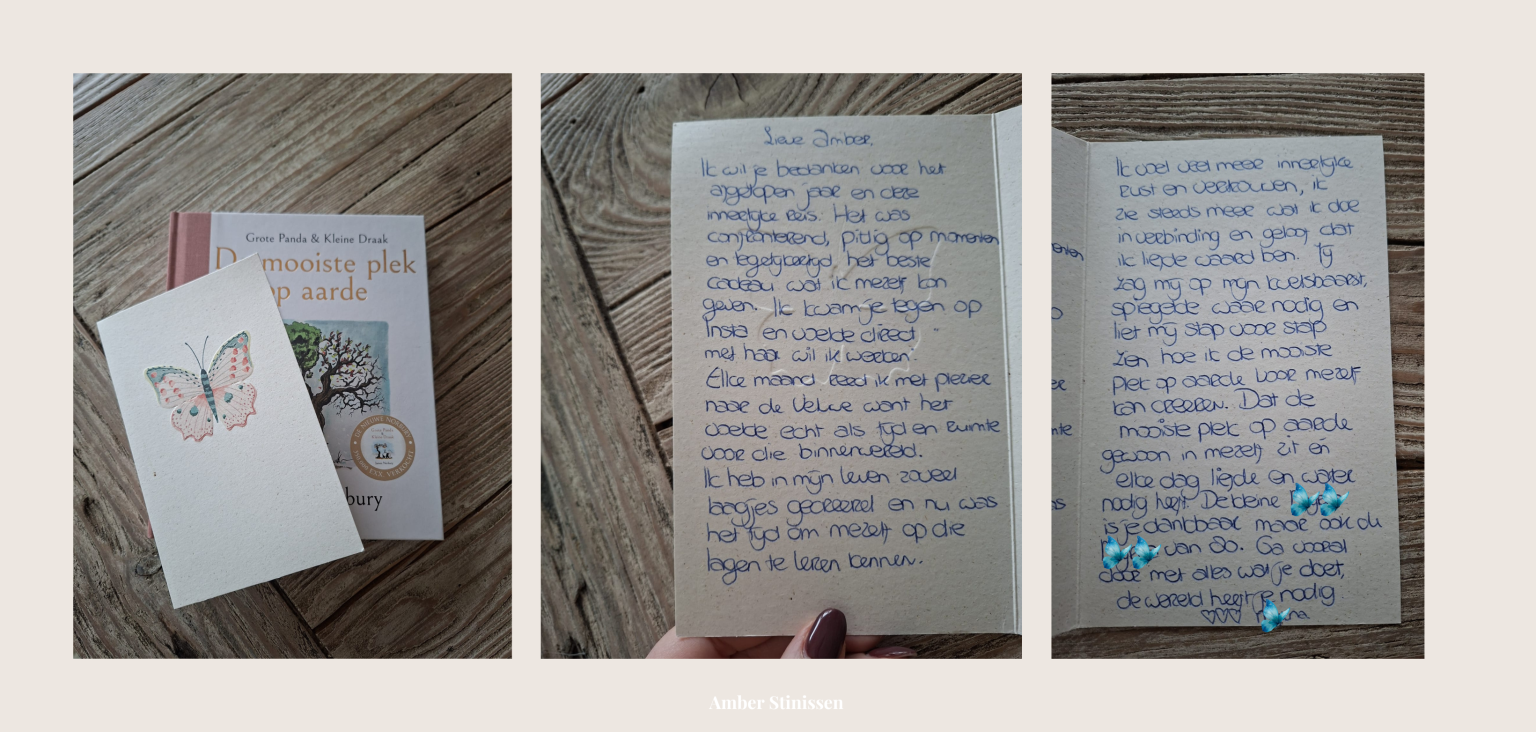 Grote Panda & Kleine Draak
De mooiste plek
op aarde
bury
Lieve Amber,
Ik wil je bedanken voor het
afgelopen jaar en deze
innerlijke reis. Het was
confronterend, pittig op momenten
en tegelijkertijd het beste
cadeau wat ik mezelf kon
geven. Ik kwam je tegen op
Insta en voelde direct
"met haar wil ik werken".
Elke maand reed ik met plezier
naar de Veluwe want het
voelde echt als tijd en ruimte
voor die binnenwereld.
Ik heb in mijn leven zoveel
laagjes gecreëerd en nu was
het tijd om mezelf op die
lagen te leren kennen.
Ik voel veel meer innerlijke
rust en vertrouwen, ik
zie steeds meer wat ik doe
in verbinding en geloof dat
ik liefde waard ben. Jij
zag mij op mijn kwetsbaarst,
spiegelde waar nodig en
liet mij stap voor stap
zien hoe ik de mooiste
plek op aarde voor mezelf
kan creëren. Dat de
mooiste plek op aarde
gewoon in mezelf zit en
elke dag liefde en water
nodig heeft. De kleine
is je dankbaar maar ook de
van 30. Ga vooral
door met alles wat je doet,
de wereld heeft je nodig
♡♡♡
Amber Stinissen